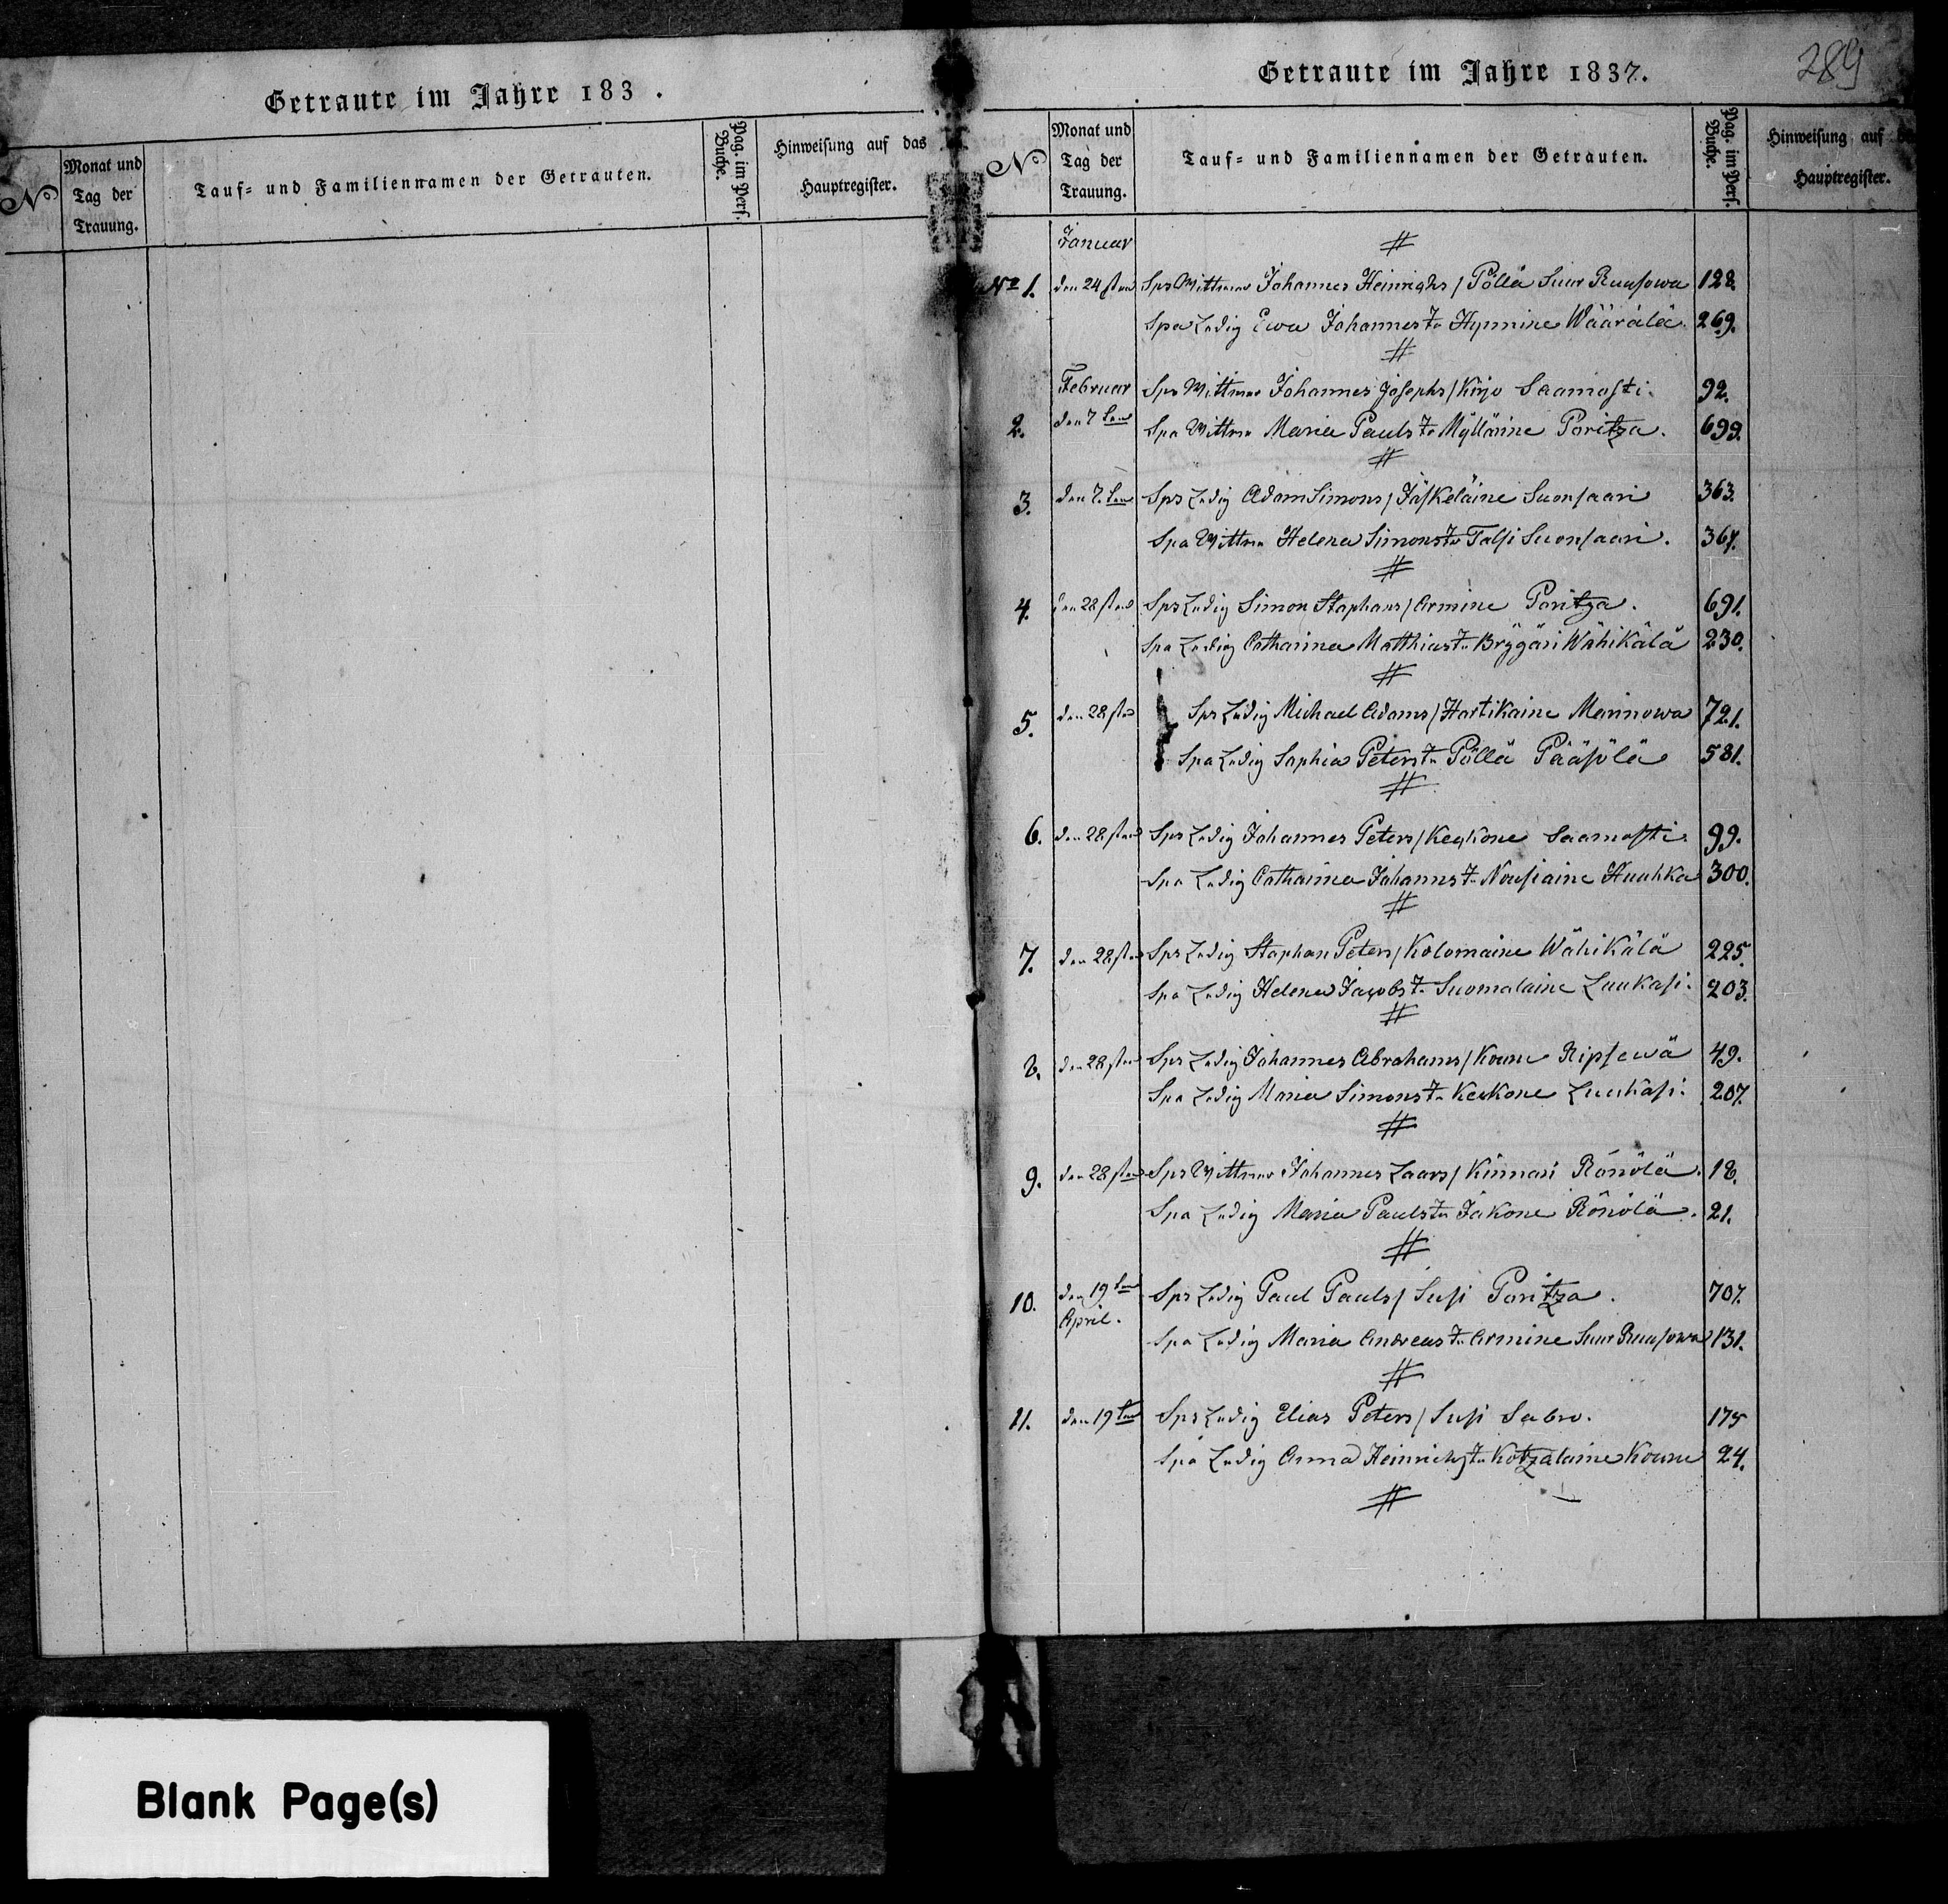 Getraute im Jahre 183 .
N
Monat und Tag der Trauung.
Tauf- und Familiennamen der Getrauten.
Pag. im Pers. Buche.
Hinweisung auf das Hauptregister.
Getraute im Jahre 1837.
289
N
Monat und Tag der Trauung.
Tauf- und Familiennamen der Getrauten.
Pag. im Pers. Buche.
Hinweisung auf
Hauptregister.
Januar
№ 1. den 24sten Sps Wittwer Johannes Heinrichs/ Pöllä Suur Ruusowa 128.
Spa Ledig Ewa Johannes t. Hynnine Wäärälä. 269.
Februar Sps Wittwer Johannes Josephs/ Kirjo Saamasti. 92.
2. den 7ten Spa Wittwe Maria Pauls t. Myllärine Poritza. 699.
3. den 7ten Sps Ledig Adam Simons/ Jäskeläine Suonsaari 363.
Spa Wittwe Helena Simons t. Talsi Suonsaari. 367.
4. den 28sten Sps Ledig Simon Staphans/ Armine Poritza. 691.
Spa Ledig Catharina Matthias t. Bryggäri Wähikälä 230.
5. den 28sten Sps Ledig Michael Adams/ Hartikaine Marinowa 721.
Spa Ledig Sophia Peters t. Pöllä Pääsölä 581.
6. den 28sten Sps Ledig Johannes Peters/ Keykone Saamasti. 99.
Spa Ledig Catharina Johanns t. Nousiaine Huuhka 300.
7. den 28sten Sps Ledig Staphan Peters/ Kolomaine Wähikälä 225.
Spa Ledig Helena Jacobs t. Suomalaine Luukasi. 203.
8. den 28sten Sps Ledig Johannes Abrahams/ Koune Ripsewä 49.
Spa Ledig Maria Simons t. Keykone Luukasi. 207.
9. den 28sten Sps Wittwer Johannes Laars/ Kinnari Rönölä. 18.
Spa Ledig Maria Pauls t. Jäkone Rönölä. 21.
10. den 19ten Sps Ledig Paul Pauls/ Susi Poritza. 707.
April. Spa Ledig Maria Andreas t. Armine Suur Ruusowa 131.
11. den 19ten Sps Ledig Elias Peters/ Susi Sabro. 175
Spa Ledig Anna Heinrichs t. Kotzalaine Koune 24.
Blank Page(s)